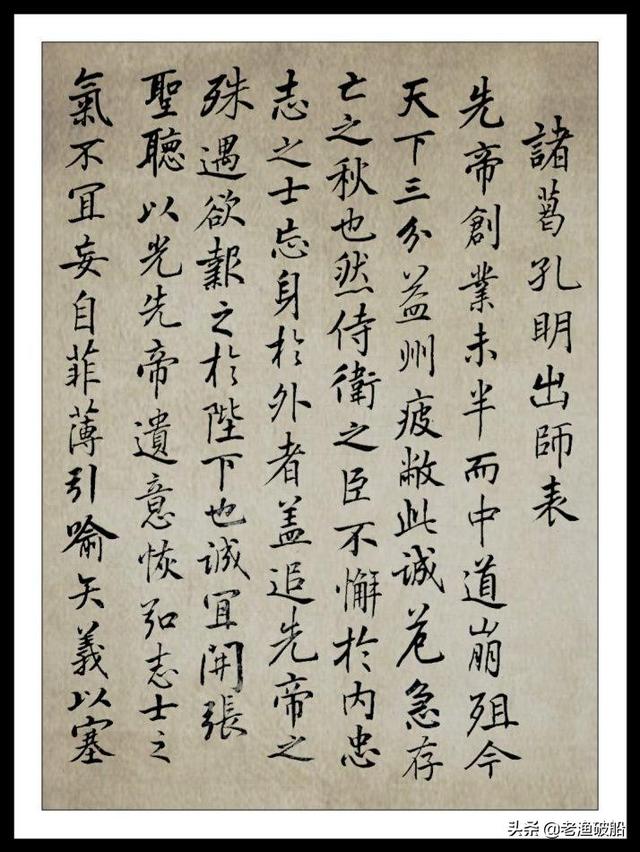 諸葛孔明出師表
先帝創業未半而中道崩殂今
天下三分益州疲敝此誠危急存
亡之秋也然侍衛之臣不懈於内忠
志之士忘身於外者蓋追先帝之
殊遇欲報之於陛下也誠宜開張
聖聽以光先帝遺意恢弘志士之
氣不宜妄自菲薄引喻失義以塞
头条@老渔破船